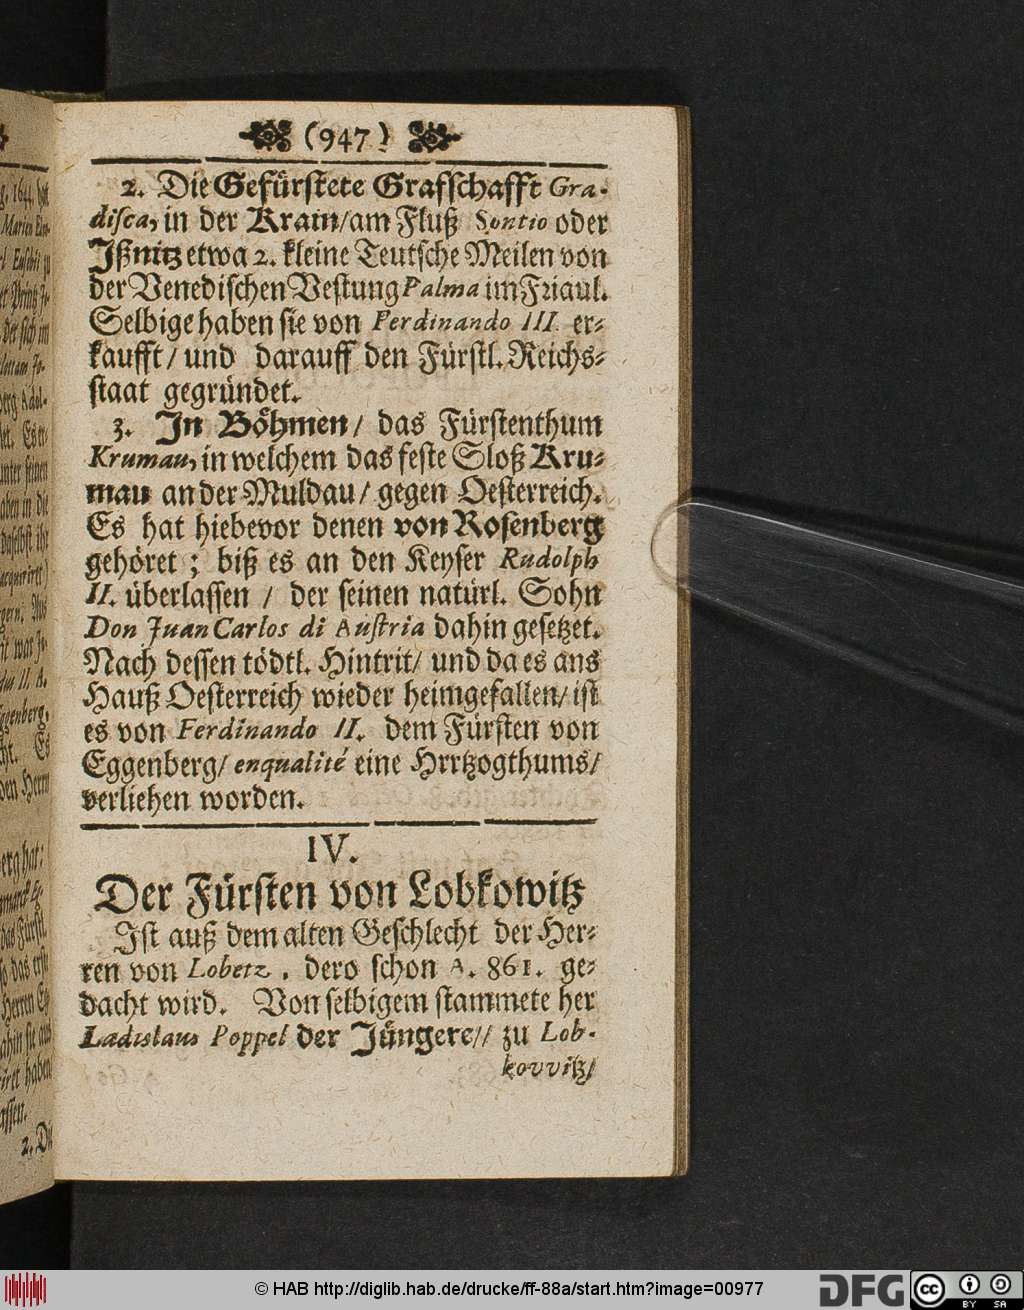 (947)
2. Die Gefürstete Grafschafft Gra-
disca, in der Krain/am Fluß Sontio oder
Jßnitz etwa 2. kleine Teutsche Meilen von
der Venedischen Vestung Palma im Friaul.
Selbige haben sie von Ferdinando III. er-
kaufft/ und darauff den Fürstl. Reichs-
staat gegründet.
3. In Böhmen/ das Fürstenthum
Krumau, in welchem das feste Sloß Kru-
mau an der Muldau/ gegen Oesterreich.
Es hat hiebevor denen von Rosenberg
gehöret; biß es an den Keyser Rudolph
II. überlassen / der seinen natürl. Sohn
Don Juan Carlos di Austria dahin gesetzet.
Nach dessen tödtl. Hintrit/ und da es ans
Hauß Oesterreich wieder heimgefallen/ ist
es von Ferdinando II. dem Fürsten von
Eggenberg/ enqualité eine Hrrtzogthums/
verliehen worden.
IV.
Der Fürsten von Lobkowitz
Ist auß dem alten Geschlecht der Her-
ren von Lobetz. dero schon A. 861. ge-
dacht wird. Von selbigem stammete her
Ladislaus Poppel der Jüngere// zu Lob-
kovvitz/
© HAB http://diglib.hab.de/drucke/ff-88a/start.htm?image=00977
DFG
cc BY SA